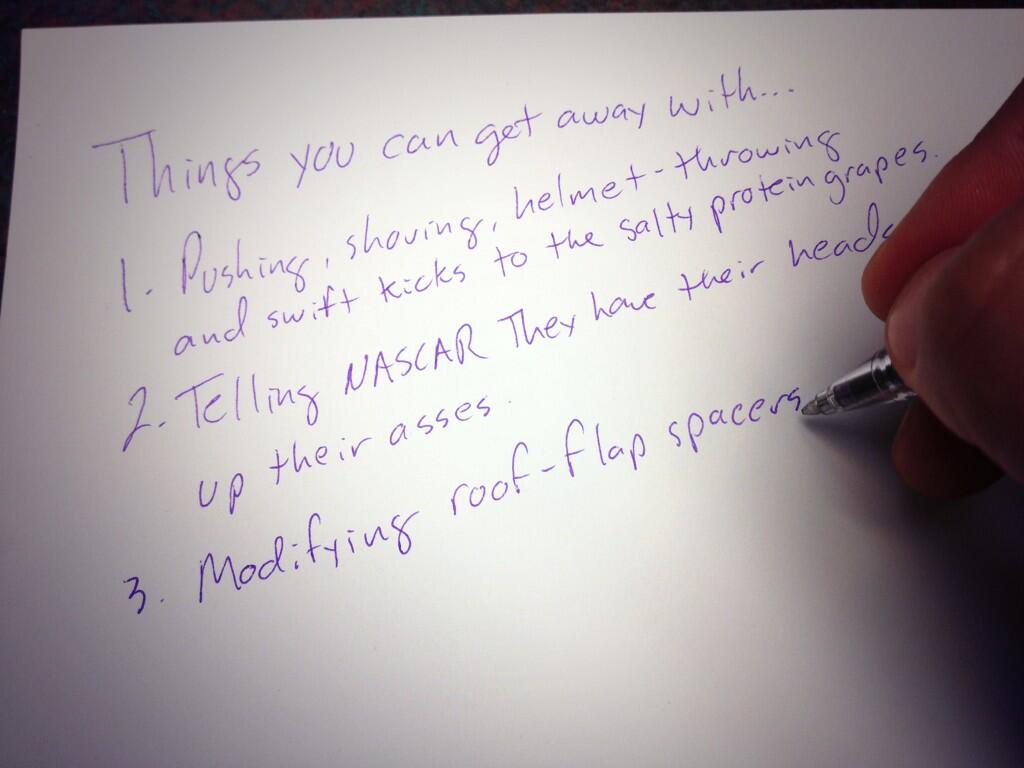 Things you can get away with...
1. Pushing, shoving, helmet-throwing
and swift kicks to the salty protein grapes.
2. Telling NASCAR They have their heads
up their asses.
3. Modifying roof-flap spacers